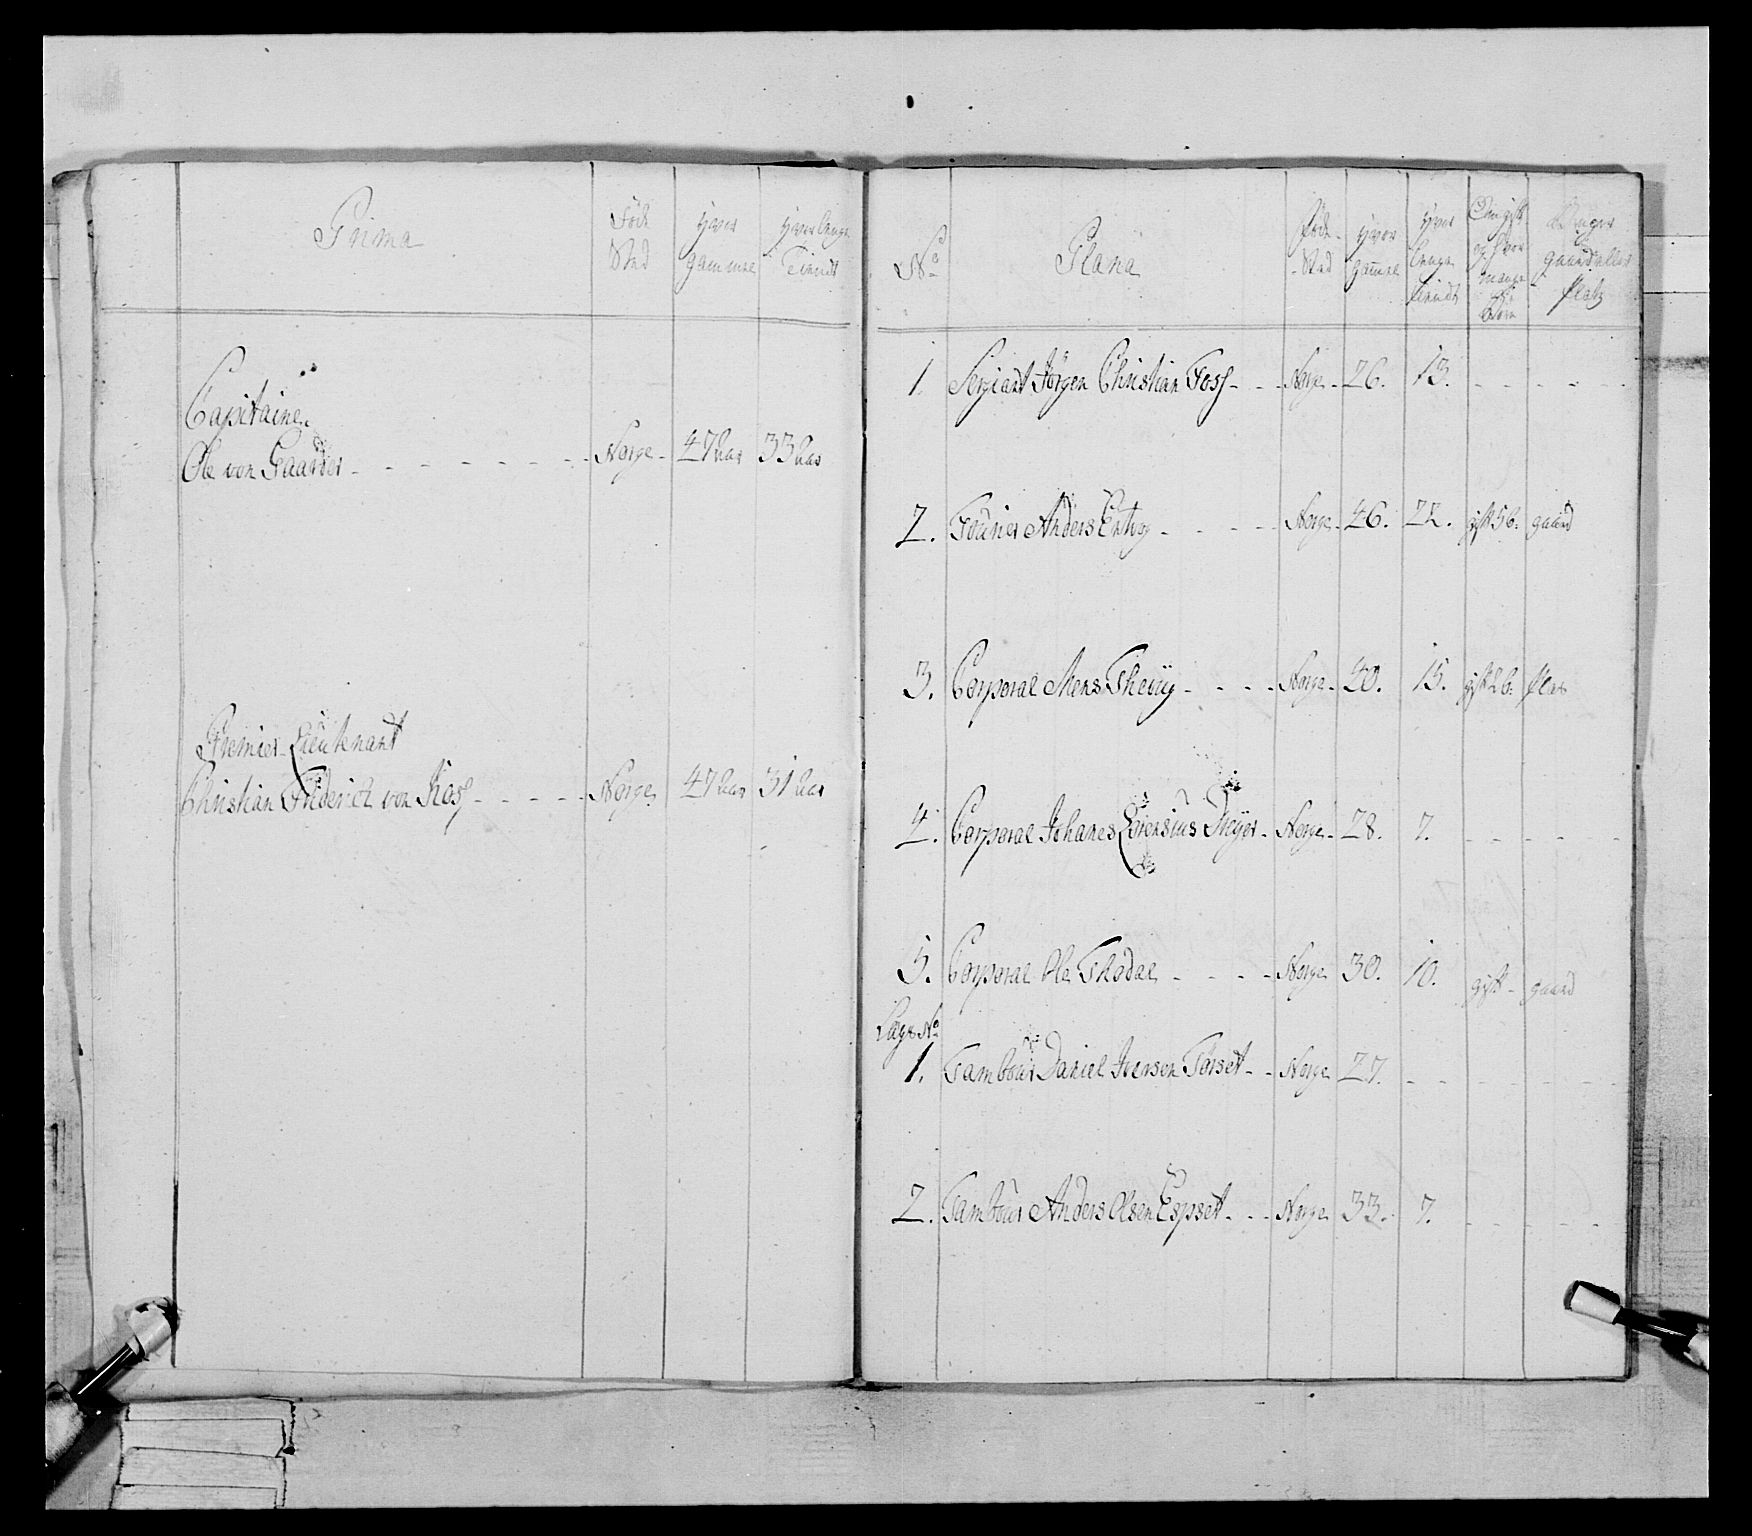 Prima
Föde
Sted
Hvor
gammel
Hvor lenge
Tiendt
Capitaine
Ole von Gaarder - - - - - - - Norge - 47 aar 33 aar
Premier Lieutenant
Christian Friderich von Kos - - - - - Norge 47 aar 31 aar
No
Plana
Föde
Sted
Hvor
gamel
Hvor
lenge
tiendt
Om gift
og hvor
mange
Börn
gaard eller
platz
1. Sergiant Jörgen Christian Foss - - - Norge - 26. 13. - - - - -
2. Fourier Anders - - - - Norge - 46. 22. gift 5 b. gaard
3. Corporal Mons - - - - Norge - 40. 15. gift 2 b. plas
4. Corporal Johanes Lorensius Meyer - Norge - 28. 7. - - - -
5. Corporal Ole - - - - Norge 30. 10. gift - gaard
Laegs No
1. Tambour Daniel Iversen Torset - - Norge 27. - - - - -
2. Tambour Anders Olsen Espset - - - Norge 33. 7. - - - - -